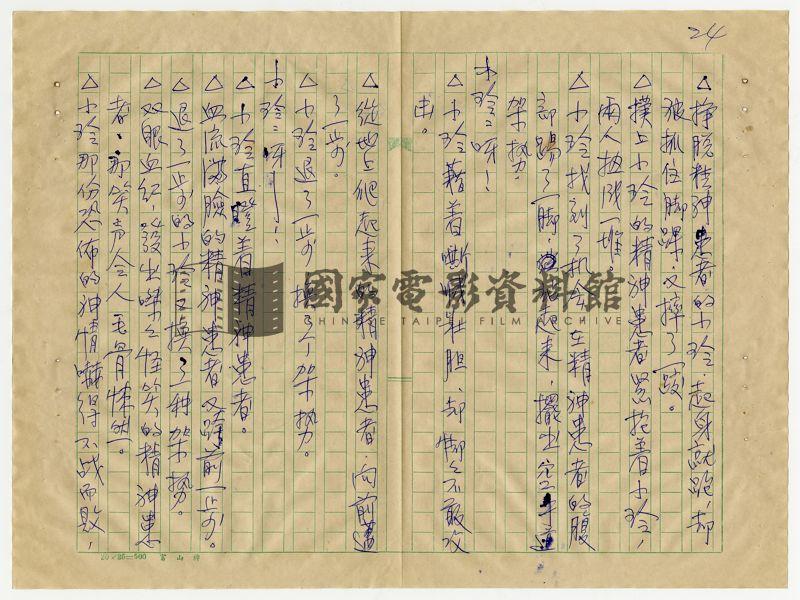 24
△掙脫精神患者的小玲,起身就跑,却
被抓住脚踝,又摔了一跤。
△撲上小玲的精神患者緊抱着小玲,
兩人扭成一堆
△小玲找到了机会在精神患者的腹
部踢了一脚,爬起来,擺出空手道
架勢。
小玲:呀!
△小玲藉着嘶喊壯胆,却脚下不敢攻
击。
△從地上爬起来的精神患者,向前邁
了一步。
△小玲退了一步,換了个架勢。
小玲:呀——!
△小玲直瞪着精神患者。
△血流滿臉的精神患者又跨前一步。
△退了一步的小玲又換了一种架勢。
△双眼血紅,發出嘿嘿怪笑的精神患
者,那笑声令人毛骨悚然。
△小玲那份恐佈的神情嚇得不战而敗,
國家電影資料館
CHINESE TAIPEI FILM ARCHIVE
20×25=500 富山牌